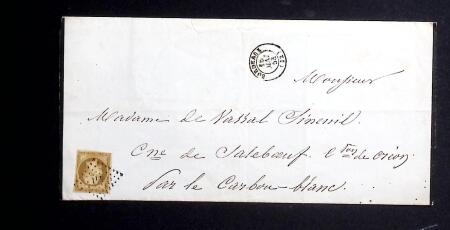 BORDEAUX (32)
Monsieur
Madame de Vassal Sineuil
Cne de Salebœuf Con de Créon
Par le Carbon-blanc.